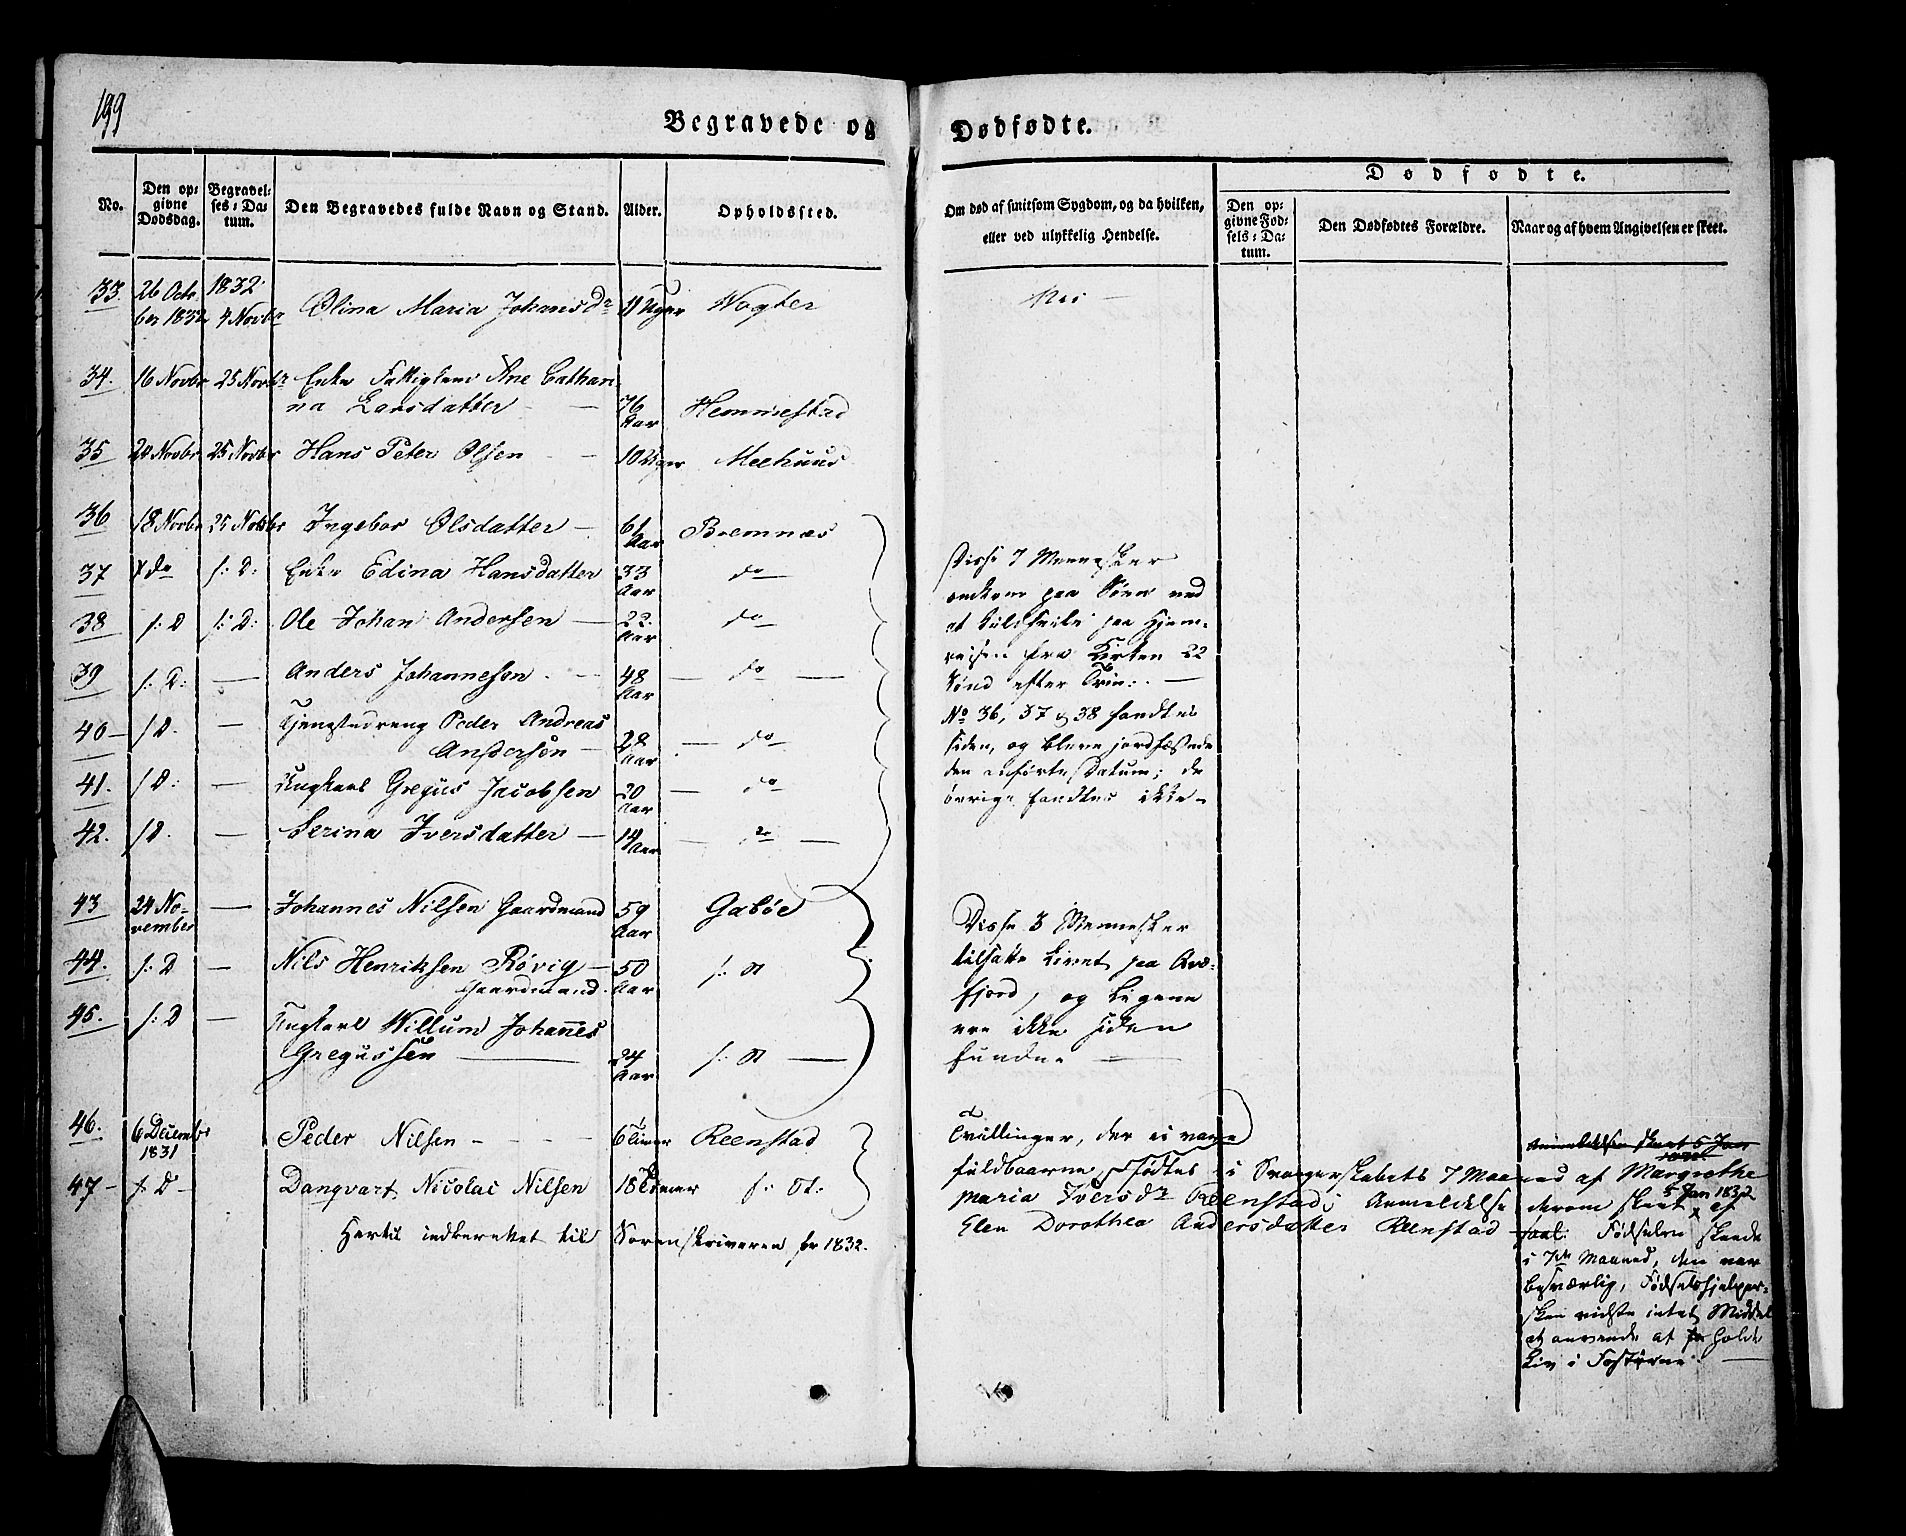 199
Begravede og Dødfødte.
No.
Den op-
givne
Dødsdag.
Begravel-
ses-Da-
tum.
Den Begravedes fulde Navn og Stand.
Alder.
Opholdssted.
Om død af smitsom Sygdom, og da hvilken,
eller ved ulykkelig Hendelse.
Dødfødte.
Den op-
givne Fød-
sels-Da-
tum.
Den Dødfødtes Forældre.
Naar og af hvem Angivelsen er skeet.
33. 26 Octo- 1832.
ber 1832 4 Novbr Olina Maria Johansdr 11 Uger Vogter Nei —
34. 16 Novbr 25 Novbr Enke Fattiglem Ane Cathari
na Larsdatter — 76 Aar Hemmestad
35 20 Novbr 25 Novbr Hans Peter Olsen — 10 Uger Meehuus
36 18 Novbr 25 Novbr Ingebor Olsdatter — 61 Aar Bremnæs
37 do f: D: Enke Edina Hansdatter 33 Aar do
38 f: D f: D: Ole Johan Andersen — 22 Aar do
39 f: D: — Anders Johannesen — 48 Aar — do —
40 — f D. — Tjenestedreng Peder Andreas
Andersen — 28 Aar — do
41. f D: — Ungkarl Gregus Jacobsen 20 Aar — do
42. f D. — Serina Iversdatter — 14 Aar — do —
Disse 7 Mennesker
omkom paa Søen ved
at kuldseile paa Hjem-
reisen fra Kirken 22
Sønd efter Trin: —
No 36, 37 & 38 fandtes
siden, og bleve jordfæstede
den anførte Datum; de
øvrige fandtes ikke —
43 24 No-
vember — Johannes Nilsen Gaardmand 59 Aar Gaböe
44. f: D — Nils Henriksen Røvig —
Gaardmand. 50 Aar f: St
45. f: D — Ungkarl Willum Johannes
Gregussen — 24 Aar f: St —
Disse 3 Mennesker
tilsatte Livet paa Qvæ-
fjord, og Ligene
ere ikke siden
fundne —
46. 6 Decembr
1831 Peder Nilsen - - - 6 Timer Reenstad
47 — f: D — Danqvart Nicolai Nilsen 18 Timer f: St:
Tvillinger, der ei vare
fuldbaarne, fødtes i Svangerskabets 7 Maaned af Margrethe
Maria Iversdr Reenstad; Anmeldelse derom skeet x af
5 Jan 1832
Elen Dorothea Andersdatter Reenstad
Anmeldelsen skeet 5 Jan
1832
Fødselen skeede
i 7de Maaned, den var
besværlig, Fødselshjelper-
sken vidste intet Middel
at anvende at holde
Liv i Fostrene. —
Hertil indberettet til Sorenskriveren for 1832.